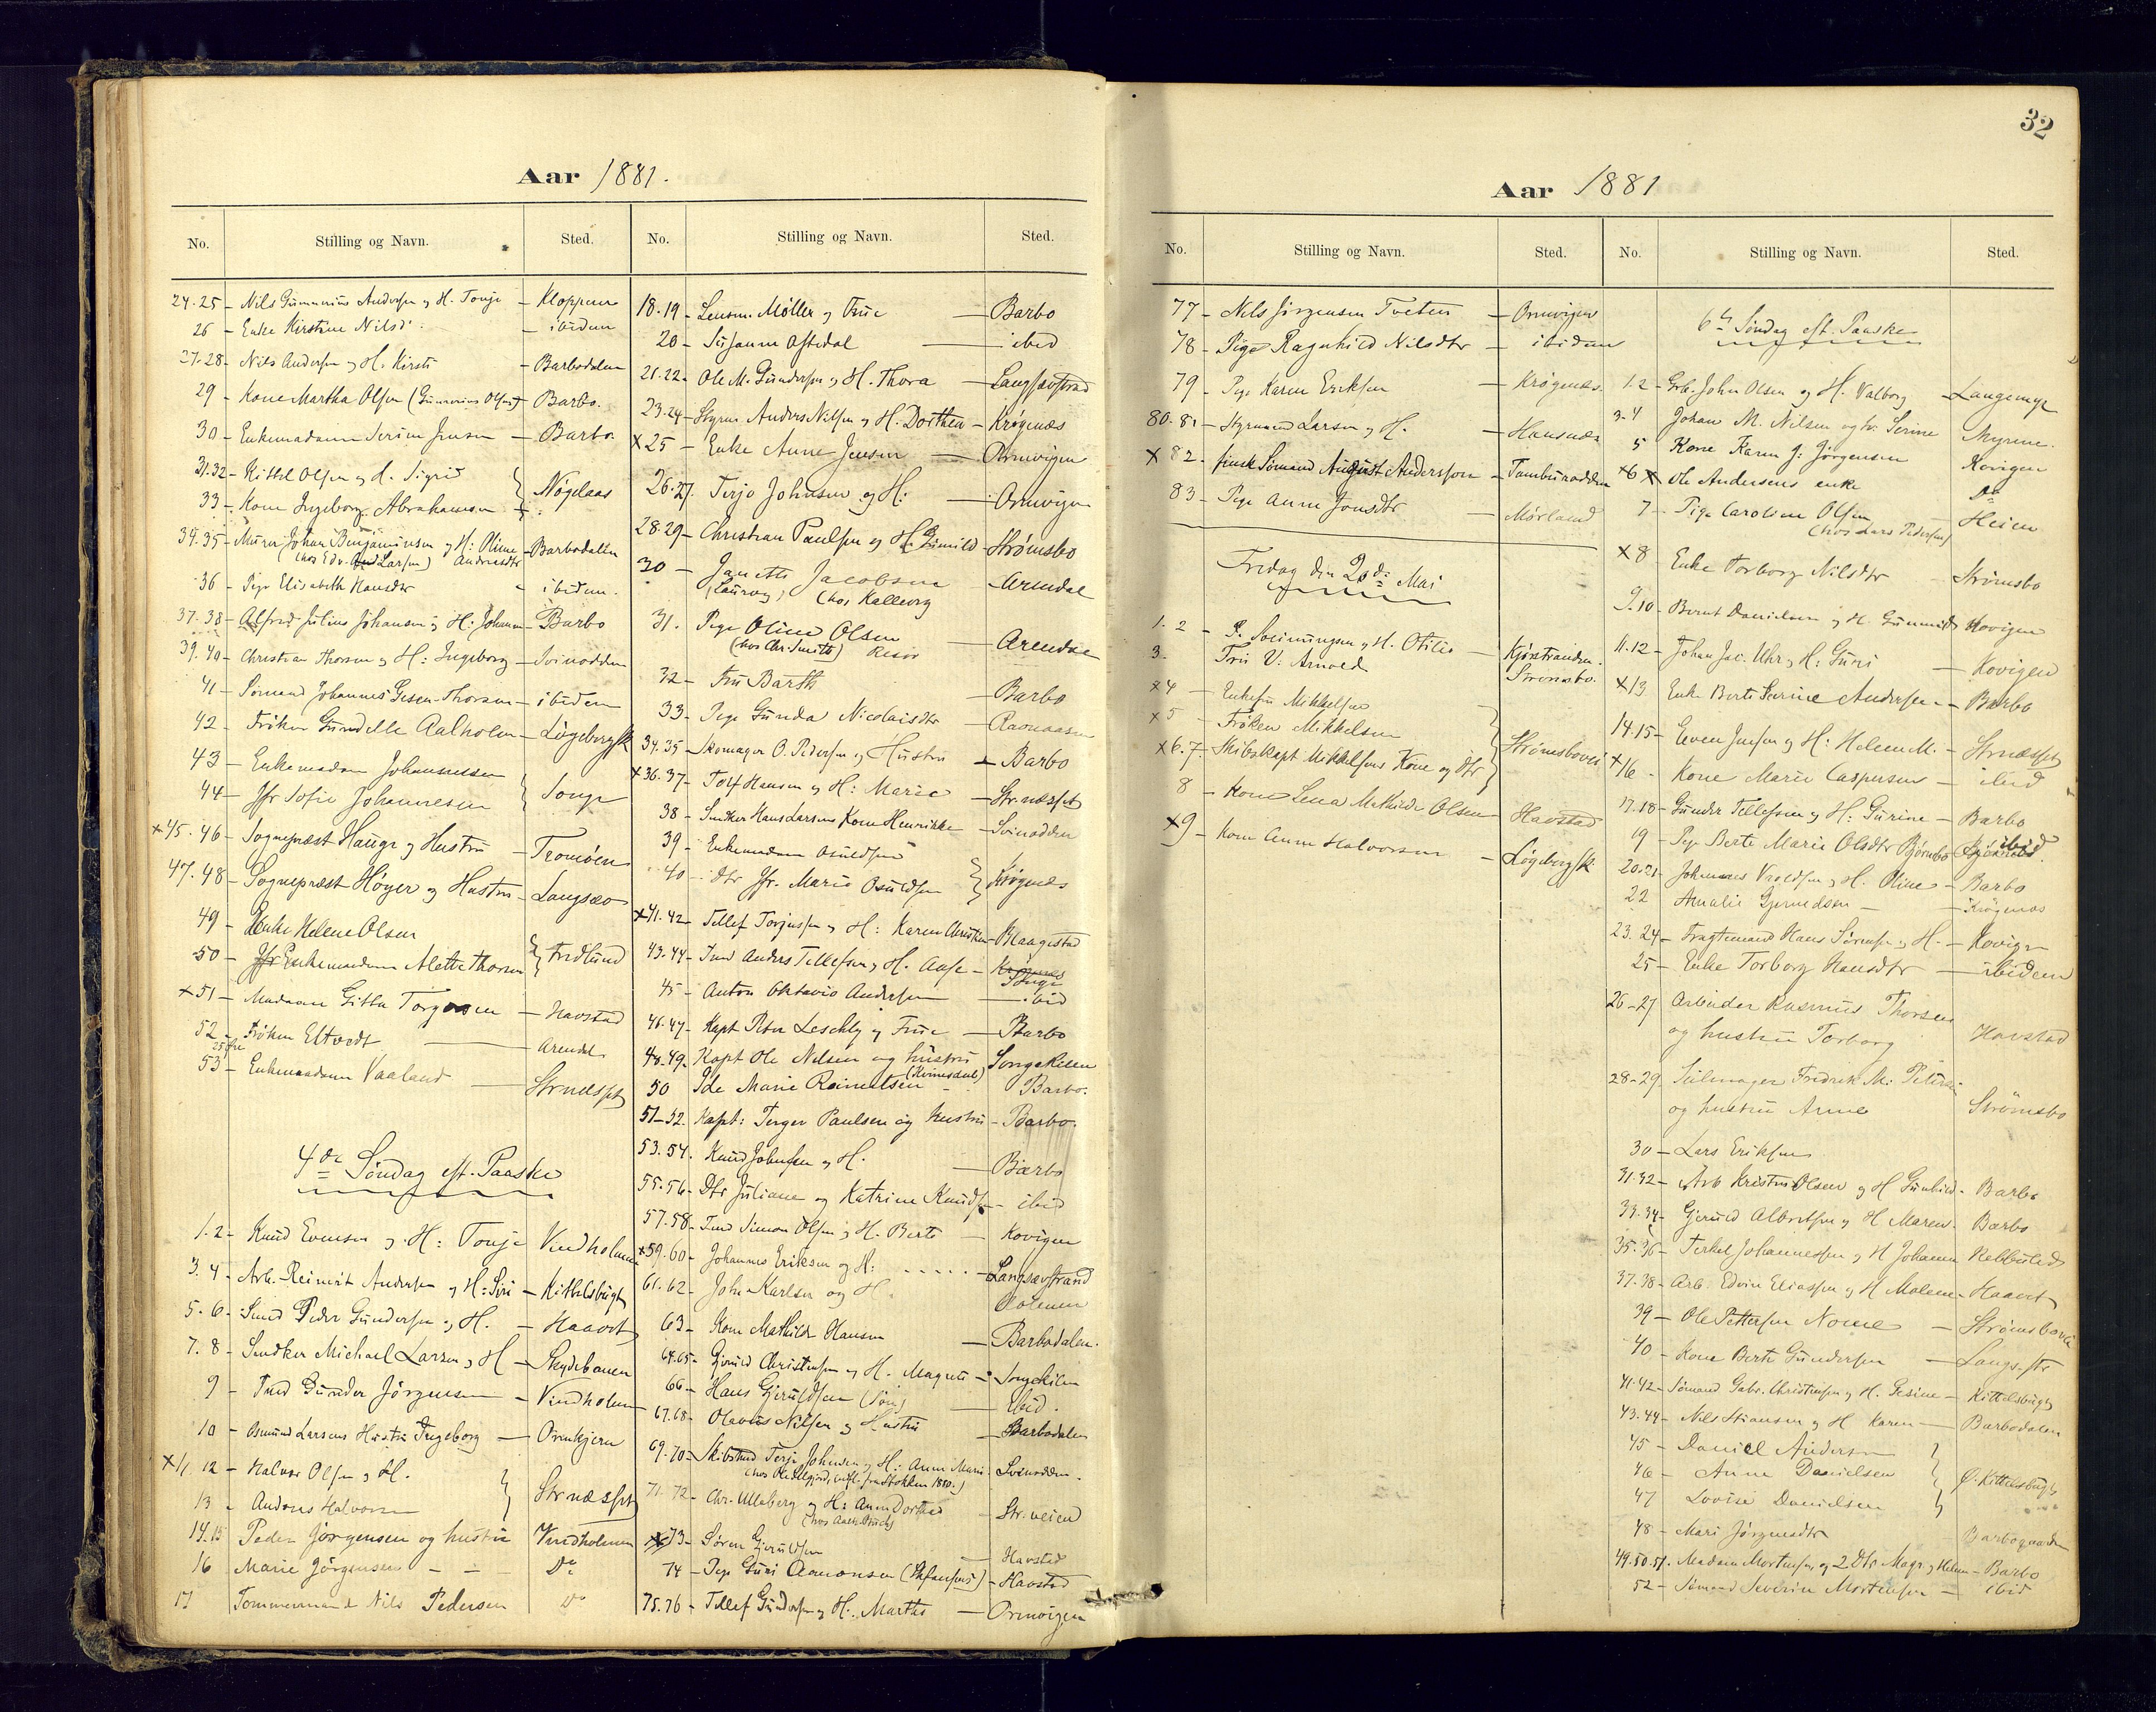 32
Aar 1881.
No. Stilling og Navn. Sted.
24-25 - Nils Gummerius Andersen og H. Tonje - Kloppene
26 - Enke Kirstine Nilsd. - ibidem
27-28 - Nils Andersen og H. Kirsti - Barbodalen
29 - Kone Martha Olsen (Gummerius Olsens) - Barbo.
30 - Enkemadam Serine Jensen - Barbo.
31.32 - Kittel Olsen og H. Sigrid
33 - Kone Ingeborg Abrahamsen } Nøgelaas
34.35 - Murer Johan Benjaminsen og H: Oline Andreasdtr - Barbodalen
(hos Edv. Larsen)
36 - Pige Elisabeth Hansdtr - ibidem.
37-38 - Alfred Julius Johansen og H: Johanne - Barbo
39.40 - Christian Thorsen og H: Ingeborg - Svinodden
41 - Sømand Johannes Gesen Thorsen - ibidem
42 - Frøken Gundelle Aalholm - Løgebergsk
43 - Enkemadam Johannessen
44 - Jfr Sofie Johannesen } Songe
x45.46 - Sognepræst Hauge og Hustru - Tromøen
47.48 - Sognepræst Høyer og Hustru - Langsæo
49 - Enke Helene Olsen
50 - Jfr Enkemadam Alette Thorsen } Fredlund
x51 - Madam Gitta Torgersen - Havstad
52 - Frøken Eltvedt - Arendal
53 - Enkemadam Vaaland - Strnæsset
4de Søndag eft. Paaske
1.2 - Knud Evensen og H: Tonje Vindholmen
3.4 - Arb. Reinert Andersen og H: Siri - Kittelsbugt
5.6 - Smed Peder Gundersen og H. - Haavet
7.8 - Snedker Michael Larsen og H - Skydebanen
9 - Tmd Gunder Jørgensen - Vindholmen
10 - Osmund Larsens Hustru Ingeborg - Ørnkjern
x11.12 - Halvor Olsen og H.
13 - Anders Halvorsen } Strnæsset
14.15 Peder Jørgensen og hustru Vindholmen
16 Marie Jørgensen - - Do
17 Tømmermand Nils Pedersen Do
No. Stilling og Navn. Sted.
18.19 - Lensm. Møller og Frue - Barbo
20 - Susanne Aftedal - ibid
21.22 - Ole M. Gundersen og H. Thora - Langsævstrand
23.24 - Styrm. Anders Nilsen og H. Dorthea - Krøgenæs
x25 - Enke Anne Jensen - Ormvigen
26.27. Terje Johnsen og H: - Ormvigen
28.29 - Christian Paulsen og H. Gunild - Strømsbo
30 - Janette Jacobsen - Arendal
(Laurvig) (hos Kallevig
31. Pige Oline Olsen - Arendal
(hos Chr. Smith) Risør
32 - Fru Barth - Barbo
33 - Pige Gunda Nicolaisdtr -
34.35 - Skomager O. Pedersen og Hustru - Barbo
x36.37 - Tolf Hansen og H: Marie - Strnæsset
38 - Snedker Hans Larsens Kone Henrikke - Svinodden
39 - Enkemadam Osuldsen
40 - dtr Jfr. Marie Osuldsen } Krøgnæs
x41.42 - Tellef Torjussen og H: Karen Christine - Blaagestad
43.44 - Tmd Anders Tellefsen og H. Aase - Songe
45 - Anton Oktavio Andersen - ibid
46.47 - Kapt Peter Leschly og Frue - Barbo
48.49 - Kapt Ole Nilsen og hustru Songekilen
50 Ide Marie Reinertsen (Kvinesdal) - Barbo.
51-52. Kapt: Terger Paulsen og hustru - Barbo.
53.54. Knud Johnsen og H. - Barbo
55.56 - Dtr Juliane og Katrine Knudsen - ibid
57.58 - Tmd Simon Olsen og H. Berte - Kovigen
x59.60 - Johannes Eriksen og H: - Langsævstrand
61.62 - John Karlsen og H.
63 - Kone Mathilde Hansen - Barbodalen.
64.65 - Gjeruld Christensen og H. Magnete - Songekilen
66 - Hans Gjeruldsen (Søn) - ibid.
67.68 - Olavus Nilsen og Hustru - Barbodalen
69.70 - Skibstmd Terje Johnsen og H: Anne Marie - Svinodden.
71.72 - Chr. Ulleberg og H: Anne Dorthea - Str. veien
x73 - Søren Gjeruldsen - Havsted
74 - Pige Guri Aanonsen (Stefansens) - Havstad
75.76 - Tellef Gundersen og H. Marthe - Ormvigen
Aar 1881
No. Stilling og Navn. Sted.
77 - Nils Jørgensen Tveten - Ormvigen
78 - Pige Ragnhild Nilsdtr - ibidem
79 - Pige Karen Eriksen - Krøgenæs.
80.81 - Styrmand Larsen og H. - Hansnæs
x82 - finsk Sømand August Andersson - Tamburodden
83 - Pige Anne Jonsdtr - Mørland
Fredag den 20de Mai
1.2 - P. Soeinungsen og H. Otilie - Kjørstranden.
3. Fru V. Arnold Strømsbo.
x4 - Enkefru Mikkelsen
x5 - Frøken Mikkelsen
x6.7. - Skibskapt Mikkelsens Kone og dtr } Strømsboveien
8 - Kone Lena Mathilde Olsen - Havstad
x9 - Kone Anne Halvorsen - Løgebergsk
No. Stilling og Navn. Sted.
6te Søndag eft. Paaske
1.2 - Grb. John Olsen og H. Valborg - Langemyr
3-4 Johan M. Nilsen og h. Serine Myrene.
5 Kone Karen J. Jørgensen Kovigen
x6 x Ole Andersens enke Do
7 - Pige Caroline Olsen - Heien
(hos Lars Pedersen)
x8 Enke Torborg Nilsdtr - Strømsbo
9.10 - Bernt Danielsen og H. Gunnild Kovigen
11.12 - Johan Jac. Uhr og H: Guri - Kovigen
x13 Enke Berte Serine Andersen - Barbo
14.15 - Even Jensen og H: Helene M. - Strnæsset
x16 - Kone Marie Caspersen - ibid
17.18 - Gunder Tellefsen og H: Gurine - Barbo
19 - Pige Berte Marie Olsdtr Bjørnebo ibid.
20.21 - Johannes Vroldsen og H. Oline - Barbo
22 Amalie Gjermudsen - - Krøgenæs
23.24 - Fragtemand Hans Sørensen og H. - Kovigen
25 - Enke Torborg Hansdtr - ibidem
26-27 Arbeider Rasmus Thorsen
og hustru Torborg Havstad
28-29 Seilmager Fredrik M. Petersen
og hustru Anne Strømsbo
30 - Lars Eriksen
31.32 - Arb Kristen Olsen og H Gunhild - Barbo
33.34 - Gjeruld Albretsen og H Maren - Barbo
35.36 - Terkel Johannessen og H Johanne
37.38 - Arb. Edvin Eliassen og H Malene - Haavet
39 - Ole Pettersen Nome - Strømsbovei
40 - Kone Berte Gundersen - Langs. str
41.42 - Sømand Gabr. Christensen og H. Gesine - Kittelsbugt
43.44 - Nils Hansen og H Karen - Barbodalen
45 - Daniel Andersen
46 - Anne Danielsen } Ø. Kittelsbugt
47 Lovise Danielsen
48 - Mari Jørgensdtr Barbogaarden
49.50.51. Madam Mortensen og 2 Dtr Magr. og Helene - Barbo
52 - Sømand Severin Mortensen - ibid